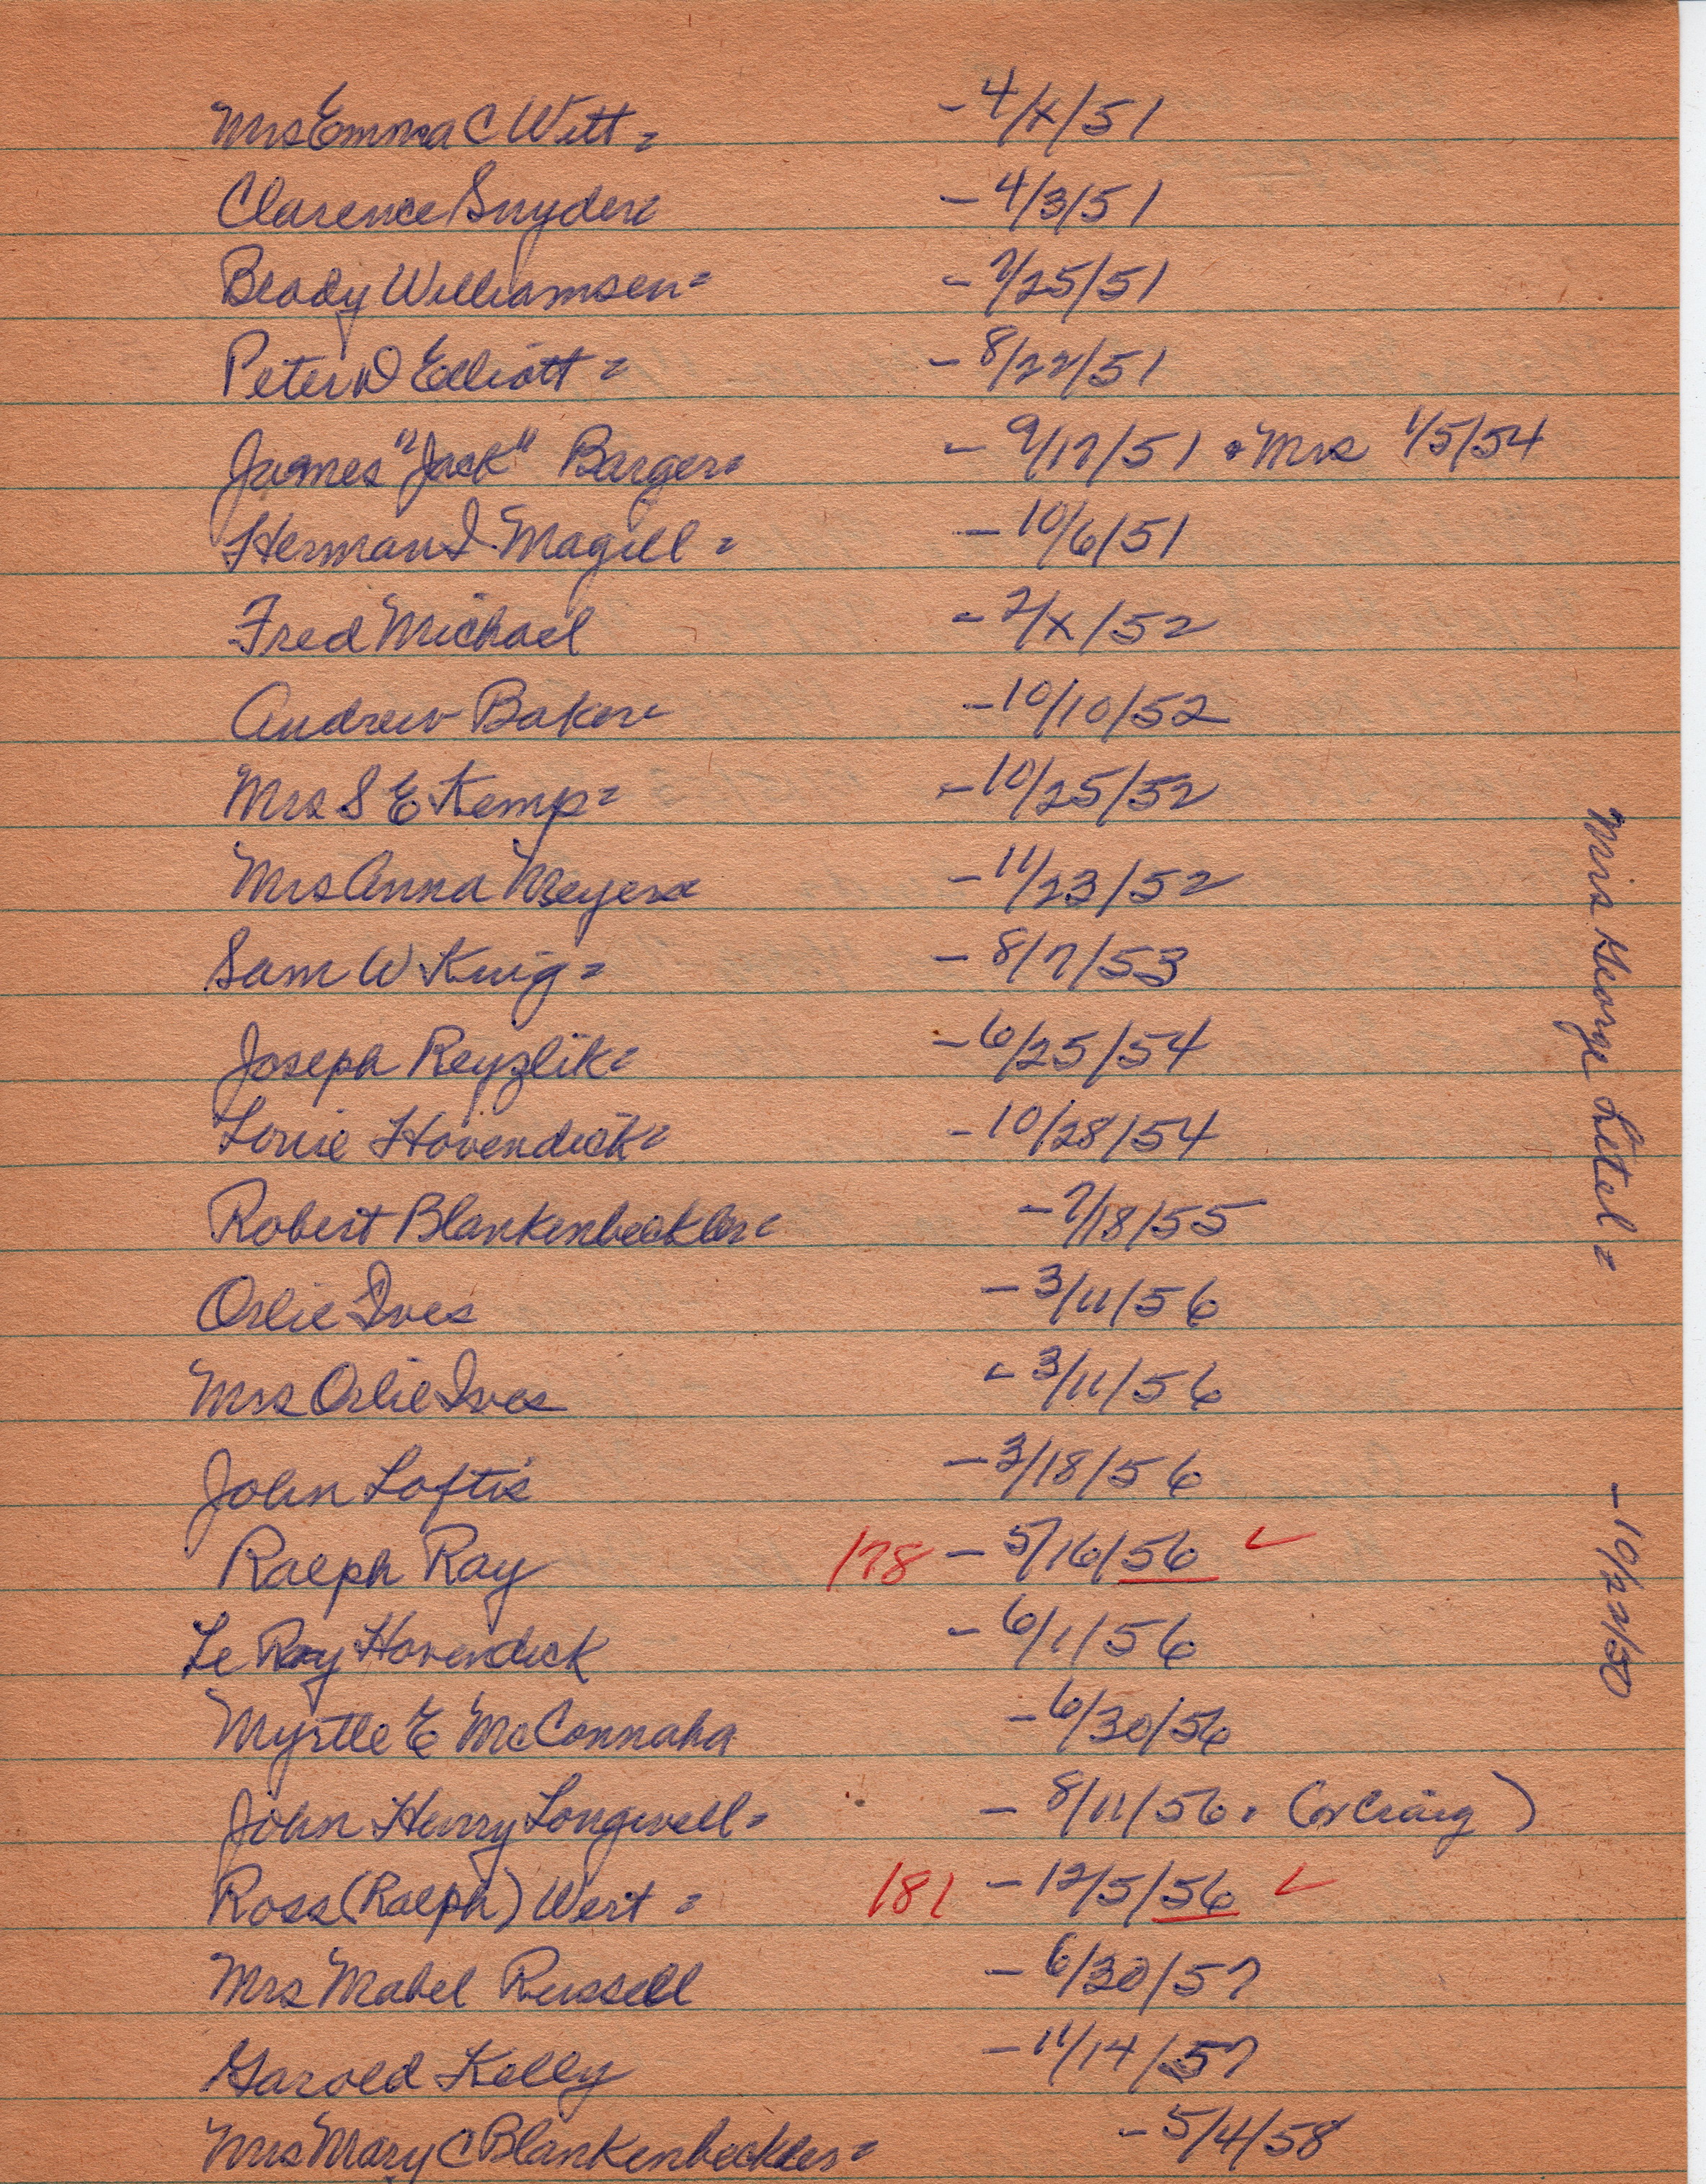 Mrs Emma C Witt = - 4/x/51
Clarence Snyder= - 4/3/51
Brady Williamsen= - 7/25/51
Peter D Elliott = - 8/22/51
James "Jack" Barger= - 9/17/51 + Mrs 1/5/54
Herman I. Magill = - 10/6/51
Fred Michael - 2/x/52
Andrew Baker= - 10/10/52
Mrs S E Kemp= - 10/25/52
Mrs Anna Meyers= - 11/23/52
Sam W King = - 8/7/53
Joseph Reyzlik= - 6/25/54
Louie Hovendick= - 10/28/54
Robert Blankenbeckler= - 7/18/55
Orlie Ives - 3/11/56
Mrs Orlie Ives - 3/11/56
John Loftis - 3/18/56
Ralph Ray 178 - 5/16/56 ✓
Le Roy Hovendick - 6/1/56
Myrtle E McConnaha - 6/30/56
John Henry Longwell= - 8/11/56. (or Craig )
Ross (Ralph) Wert = 181 - 12/5/56 ✓
Mrs Mabel Russell - 6/30/57
Garold Kelly - 11/14/57
Mrs Mary C Blankenbeckler= - 5/4/58
Mrs George Litel = - 10/22/50